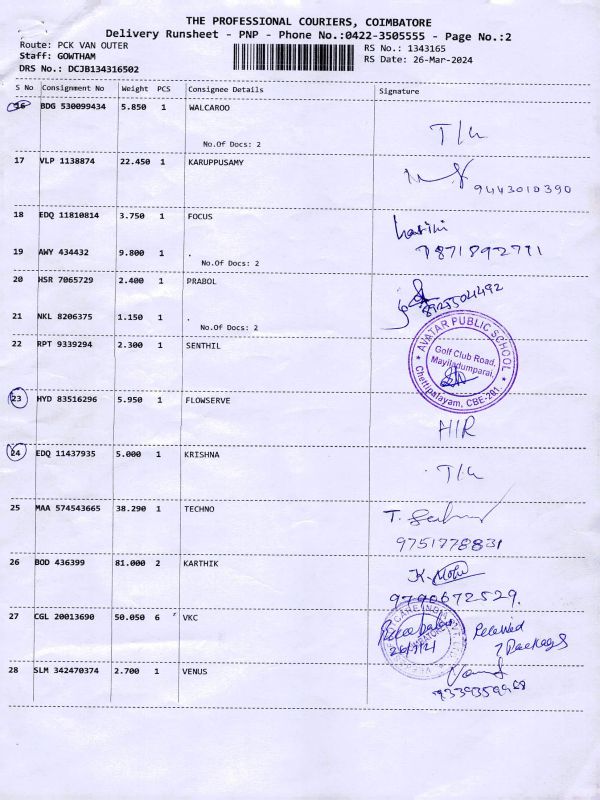 THE PROFESSIONAL COURIERS, COIMBATORE
Delivery Runsheet - PNP - Phone No.:0422-3505555 - Page No.:2
Route: PCK VAN OUTER
RS No.: 1343165
Staff: GOWTHAM
RS Date: 26-Mar-2024
DRS No.: DCJB134316502
S No Consignment No Weight PCS Consignee Details Signature
16 BDG 530099434 5.850 1 WALCAROO
No.Of Docs: 2
17 VLP 1138874 22.450 1 KARUPPUSAMY
9443010390
18 EDQ 11810814 3.750 1 FOCUS
19 AWY 434432 9.800 1 .
No.Of Docs: 2
20 HSR 7065729 2.400 1 PRABOL
21 NKL 8206375 1.150 1 .
No.Of Docs: 2
22 RPT 9339294 2.300 1 SENTHIL
AVATAR PUBLIC SCHOOL
Golf Club Road,
Mayiladumparai,
Chettipalayam, CBE-201.
23 HYD 83516296 5.950 1 FLOWSERVE
24 EDQ 11437935 5.000 1 KRISHNA
25 MAA 574543665 38.290 1 TECHNO
9751778831
26 BOD 436399 81.000 2 KARTHIK
9790672529.
27 CGL 20013690 50.050 6 VKC
Received
7 Packages
28 SLM 342470374 2.700 1 VENUS